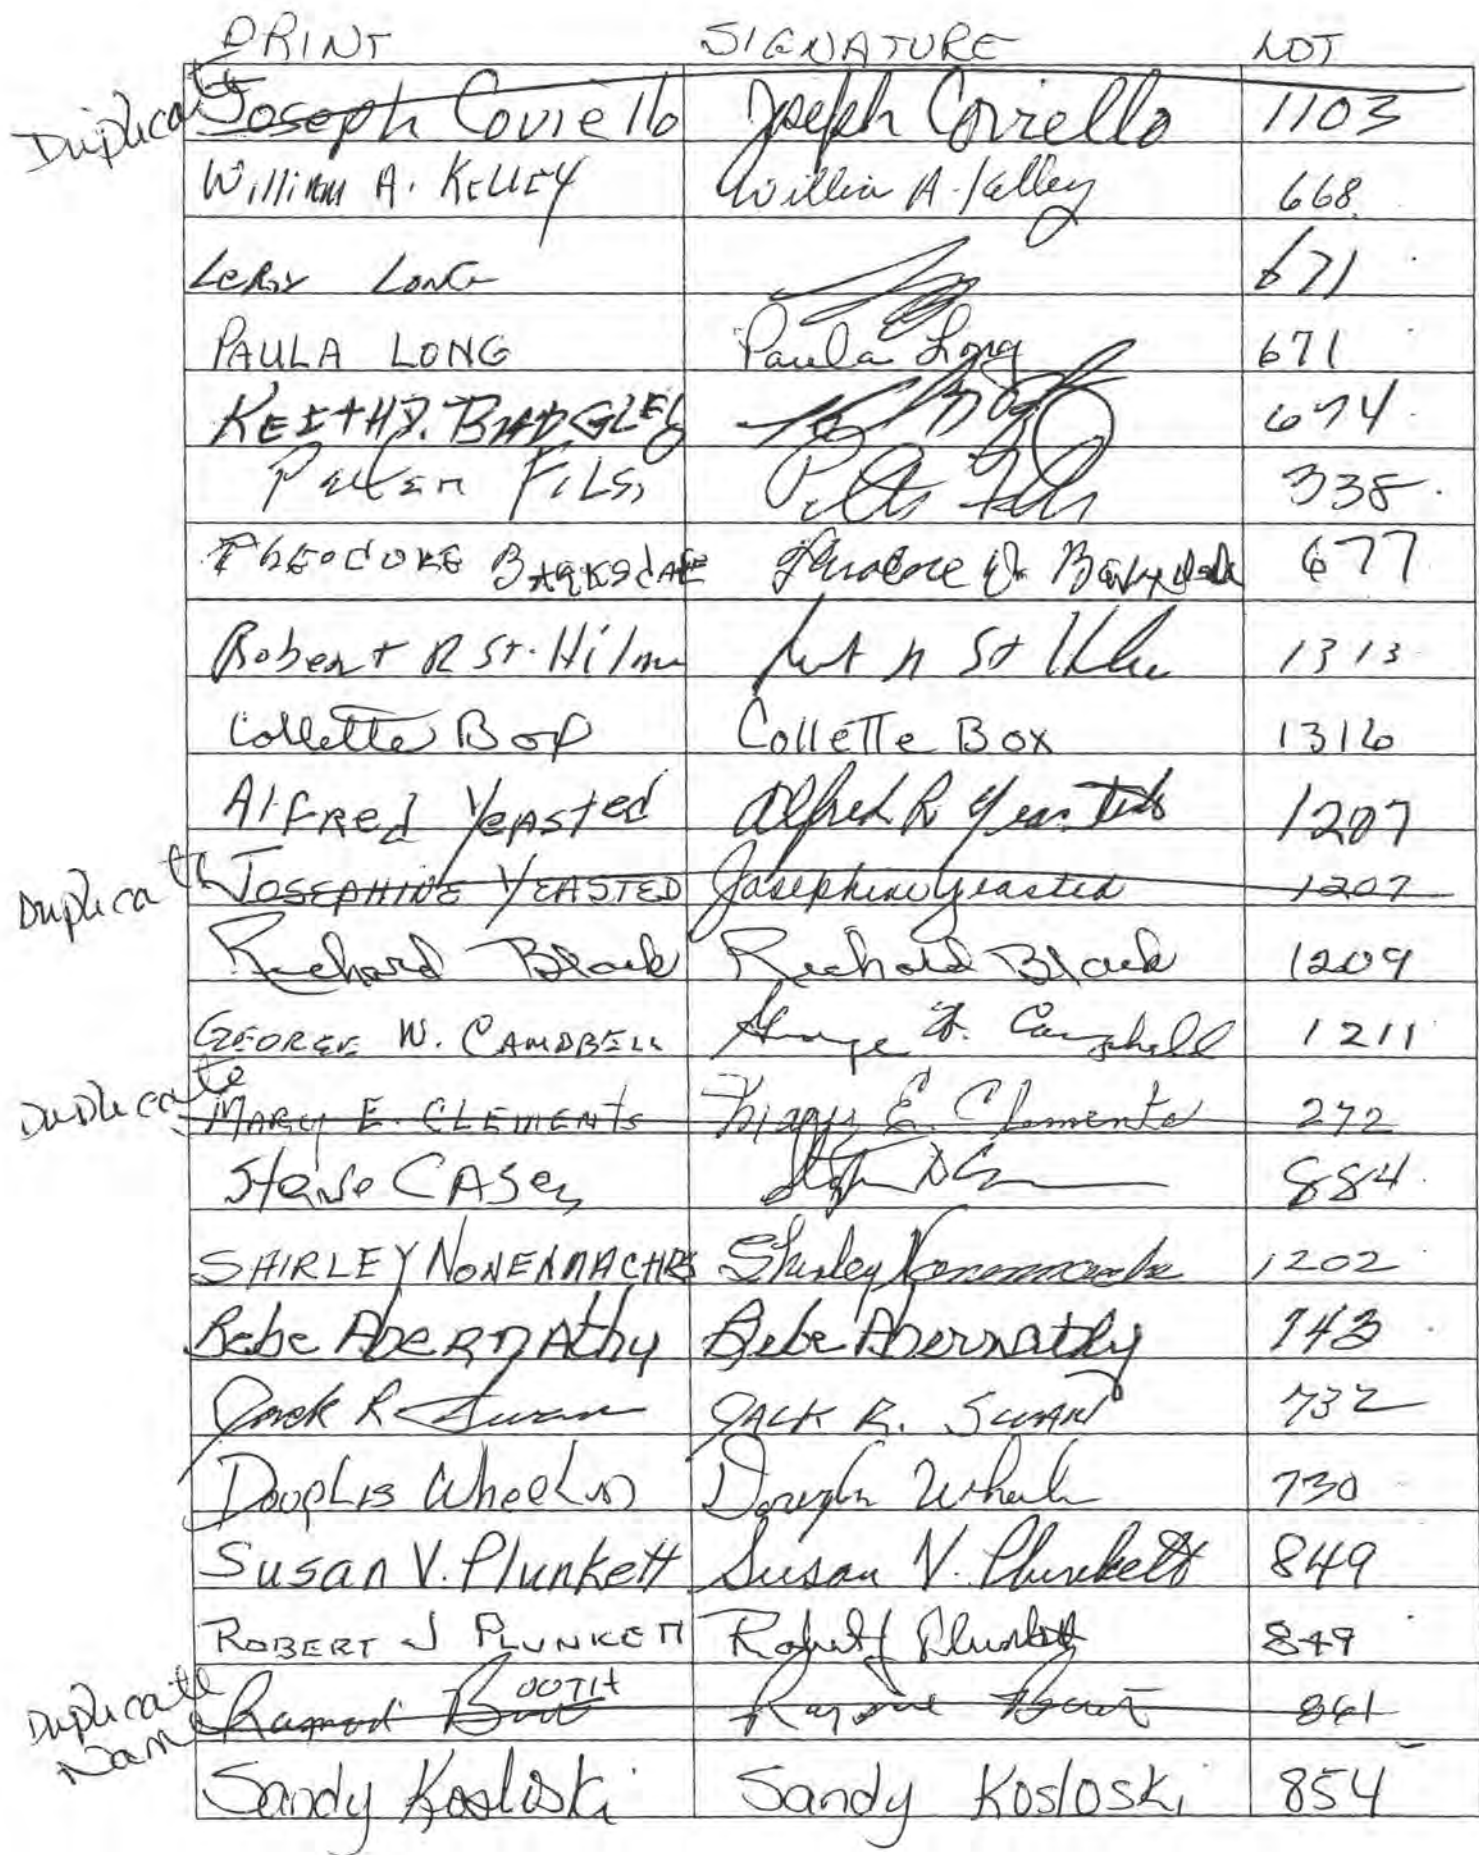 PRINT SIGNATURE LOT
Duplicate Joseph Coviello Joseph Coviello 1103
William A. Kelley William A. Kelley 668
Leroy Long 671
PAULA LONG Paula Long 671
KEITH D. BADGLEY 674
Peter Fils, 338
Theodore Barksdale Theodore D. Barksdale 677
Robert R St. Hilaire 1313
Collette Box Collette Box 1316
Alfred Yeasted Alfred R Yeasted 1207
Duplicate JOSEPHINE YEASTED Josephine Yeasted 1207
Richard Black Richard Black 1209
GEORGE W. CAMPBELL George W. Campbell 1211
Duplicate MARY E. CLEMENTS Mary E. Clements 272
Steve CASEy 884
SHIRLEY NONENMACHER Shirley Nonenmacher 1202
Bebe Abernathy Bebe Abernathy 743
Jack R. Swan JACK R. SWAN 732
Douglas Wheeler Douglas Wheeler 730
Susan V. Plunkett Susan V. Plunkett 849
ROBERT J PLUNKETT Robert J Plunkett 849
Duplicate Name Raymond Booth OOTH 861
Sandy Kosloski Sandy Kosloski 854